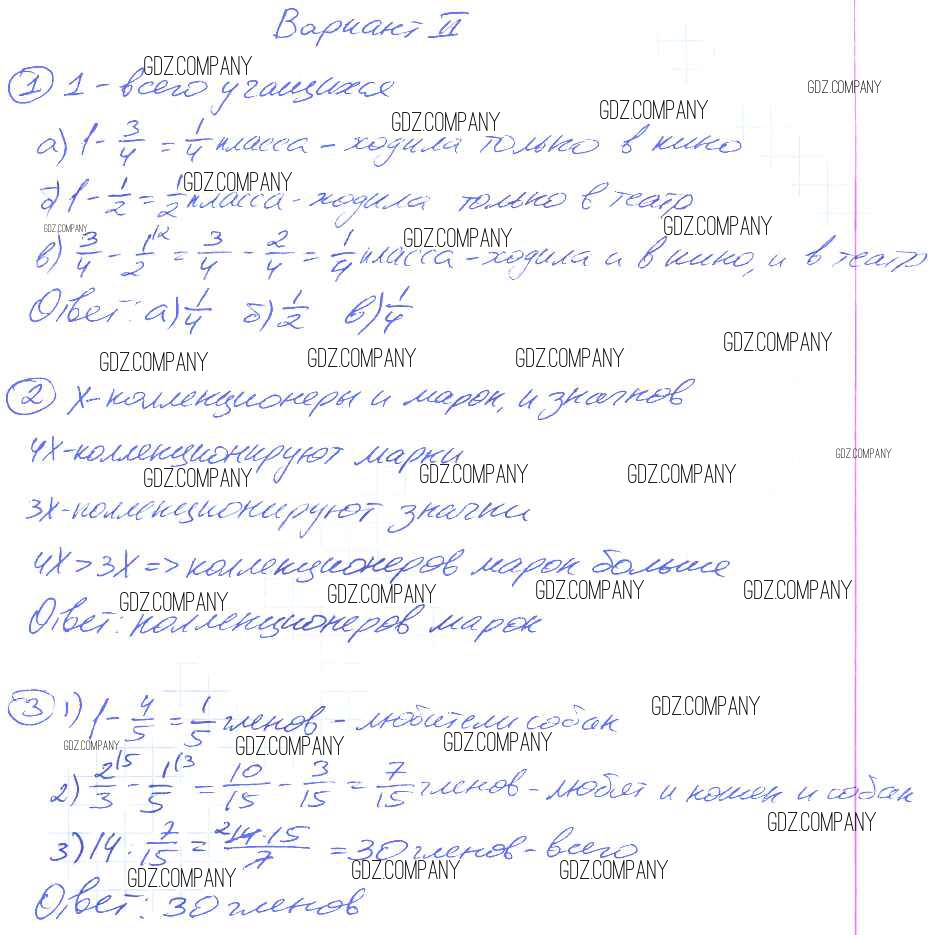 Вариант II
GDZ.COMPANY
① 1 - всего учащихся
GDZ.COMPANY
GDZ.COMPANY
GDZ.COMPANY
а) 1 - 3/4 = 1/4 класса - ходила только в кино
GDZ.COMPANY
б) 1 - 1/2 = 1/2 класса - ходила только в театр
GDZ.COMPANY
GDZ.COMPANY
GDZ.COMPANY
в) 3/4 - 1/2 (2 = 3/4 - 2/4 = 1/4 класса - ходила и в кино, и в театр
Ответ: а) 1/4 б) 1/2 в) 1/4
GDZ.COMPANY GDZ.COMPANY GDZ.COMPANY GDZ.COMPANY
② х - коллекционеры и марок, и значков
4х - коллекционируют марки
GDZ.COMPANY
GDZ.COMPANY GDZ.COMPANY GDZ.COMPANY
3х - коллекционируют значки
4х > 3х => коллекционеров марок больше
GDZ.COMPANY GDZ.COMPANY GDZ.COMPANY GDZ.COMPANY
Ответ: коллекционеров марок
③ 1) 1 - 4/5 = 1/5 членов - любители собак
GDZ.COMPANY
GDZ.COMPANY GDZ.COMPANY GDZ.COMPANY
2) 2/3 (5 - 1/5 (3 = 10/15 - 3/15 = 7/15 членов - любят и кошек и собак
GDZ.COMPANY
3) 14 · 7/15 = 2 14·15/7 = 30 членов - всего
GDZ.COMPANY GDZ.COMPANY GDZ.COMPANY
Ответ: 30 членов